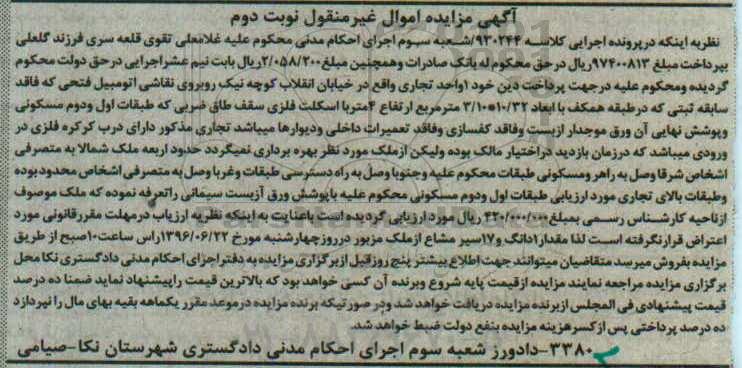 آگهی مزایده اموال غیرمنقول نوبت دوم
نظریه اینکه درپرونده اجرایی کلاسه ۹۳۰۲۴۴/شعبه سوم اجرای احکام مدنی محکوم علیه غلامعلی تقوی قلعه سری فرزند گلعلی
بپرداخت مبلغ ۹۷۴۰۰۸۱۳ریال درحق محکوم له بانک صادرات وهمچنین مبلغ ۲/۰۵۸/۲۰۰ریال بابت نیم عشراجرایی درحق دولت محکوم
گردیده ومحکوم علیه درجهت پرداخت دین خود ۱واحد تجاری واقع در خیابان انقلاب کوچه نیک روبروی نقاشی اتومبیل فتحی که فاقد
سابقه ثبتی که درطبقه همکف با ابعاد ۱۰/۳۲*۳/۱۰ مترمربع ارتفاع ۴متربا اسکلت فلزی سقف طاق ضربی که طبقات اول ودوم مسکونی
وپوشش نهایی آن ورق موجدار ازبست وفاقد کفسازی وفاقد تعمیرات داخلی ودیوارها میباشد تجاری مذکور دارای درب کرکره فلزی در
ورودی میباشد که درزمان بازدید دراختیار مالک بوده ولیکن ازملک مورد نظر بهره برداری نمیگردد حدود اربعه ملک شمالا به متصرفی
اشخاص شرقا وصل به راهر ومسکونی طبقات محکوم علیه وجنوبا وصل به راه دسترسی طبقات وغربا وصل به متصرفی اشخاص محدود بوده
وطبقات بالای تجاری مورد ارزیابی طبقات اول ودوم مسکونی محکوم علیه باپوشش ورق آزبست سیمانی راتعرفه نموده که ملک موصوف
ازناحیه کارشناس رسمی بمبلغ۴۲۰/۰۰۰/۰۰۰ ریال مورد ارزیابی گردیده است باعنایت به اینکه نظریه ارزیاب درمهلت مقررقانونی مورد
اعتراض قرارنگرفته است لذا مقدار۱دانگ و۱۷سیر مشاع ازملک مزبور درروزچهارشنبه مورخ ۱۳۹۶/۰۶/۲۲راس ساعت۱۰صبح از طریق
مزایده بفروش میرسد متقاضیان میتوانند جهت اطلاع بیشتر پنج روزقبل ازبرگزاری مزایده به دفتراجرای احکام مدنی دادگستری نکا محل
برگزاری مزایده مراجعه نمایند مزایده ازقیمت پایه شروع وبرنده آن کسی خواهد بود که بالاترین قیمت راپیشنهاد نماید ضمنا ده درصد
قیمت پیشنهادی فی المجلس ازبرنده مزایده دریافت خواهد شد ودر صورتیکه برنده مزایده درموعد مقرر یکماهه بقیه بهای مال را نپردازد
ده درصد پرداختی پس ازکسرهزینه مزایده بنفع دولت ضبط خواهد شد.
۳۳۸۰-دادورز شعبه سوم اجرای احکام مدنی دادگستری شهرستان نکا-صیامی